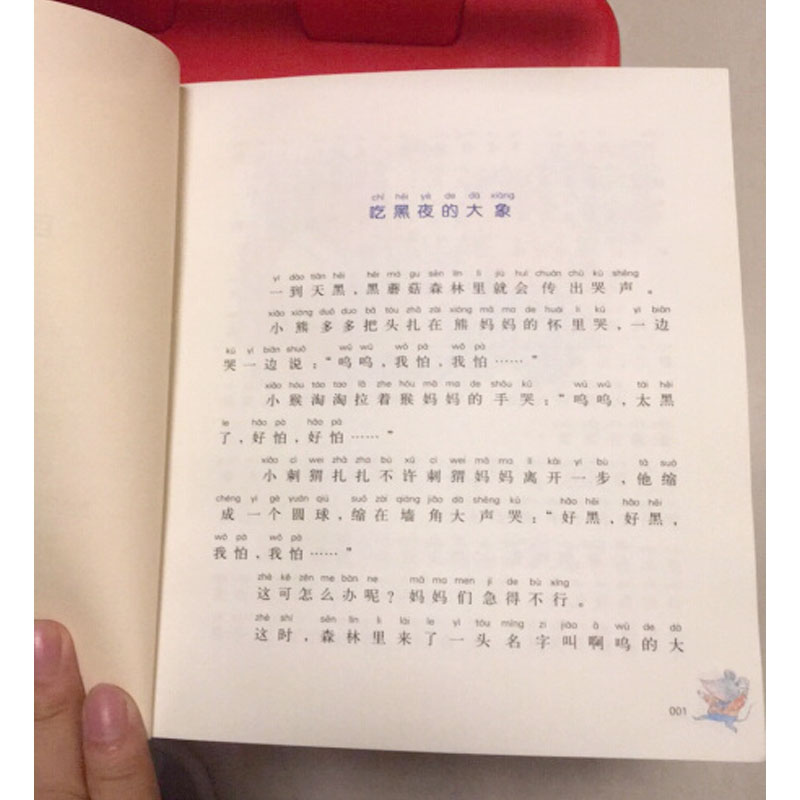 chī hēi yè de dà xiàng
吃黑夜的大象
yí dào tiān hēi hēi mó gu sēn lín lǐ jiù huì chuán chū kū shēng
一到天黑，黑蘑菇森林里就会传出哭声。
xiǎo xióng duō duo bǎ tóu zhā zài xióng mā ma de huái li kū yì biān
小熊多多把头扎在熊妈妈的怀里哭，一边
kū yì biān shuō wū wū wǒ pà wǒ pà
哭一边说：“呜呜，我怕，我怕……”
xiǎo hóu táo tao lā zhe hóu mā ma de shǒu kū wū wū tài hēi
小猴淘淘拉着猴妈妈的手哭：“呜呜，太黑
le hǎo pà hǎo pà
了，好怕，好怕……”
xiǎo cì wei zhā zha bù xǔ cì wei mā ma lí kāi yí bù tā suō
小刺猬扎扎不许刺猬妈妈离开一步，他缩
chéng yí gè yuán qiú suō zài qiáng jiǎo dà shēng kū hǎo hēi hǎo hēi
成一个圆球，缩在墙角大声哭：“好黑，好黑，
wǒ pà wǒ pà
我怕，我怕……”
zhè kě zěn me bàn ne mā ma men jí de bù xíng
这可怎么办呢？妈妈们急得不行。
zhè shí sēn lín li lái le yì tóu míng zi jiào ā wū de dà
这时，森林里来了一头名字叫啊呜的大
001